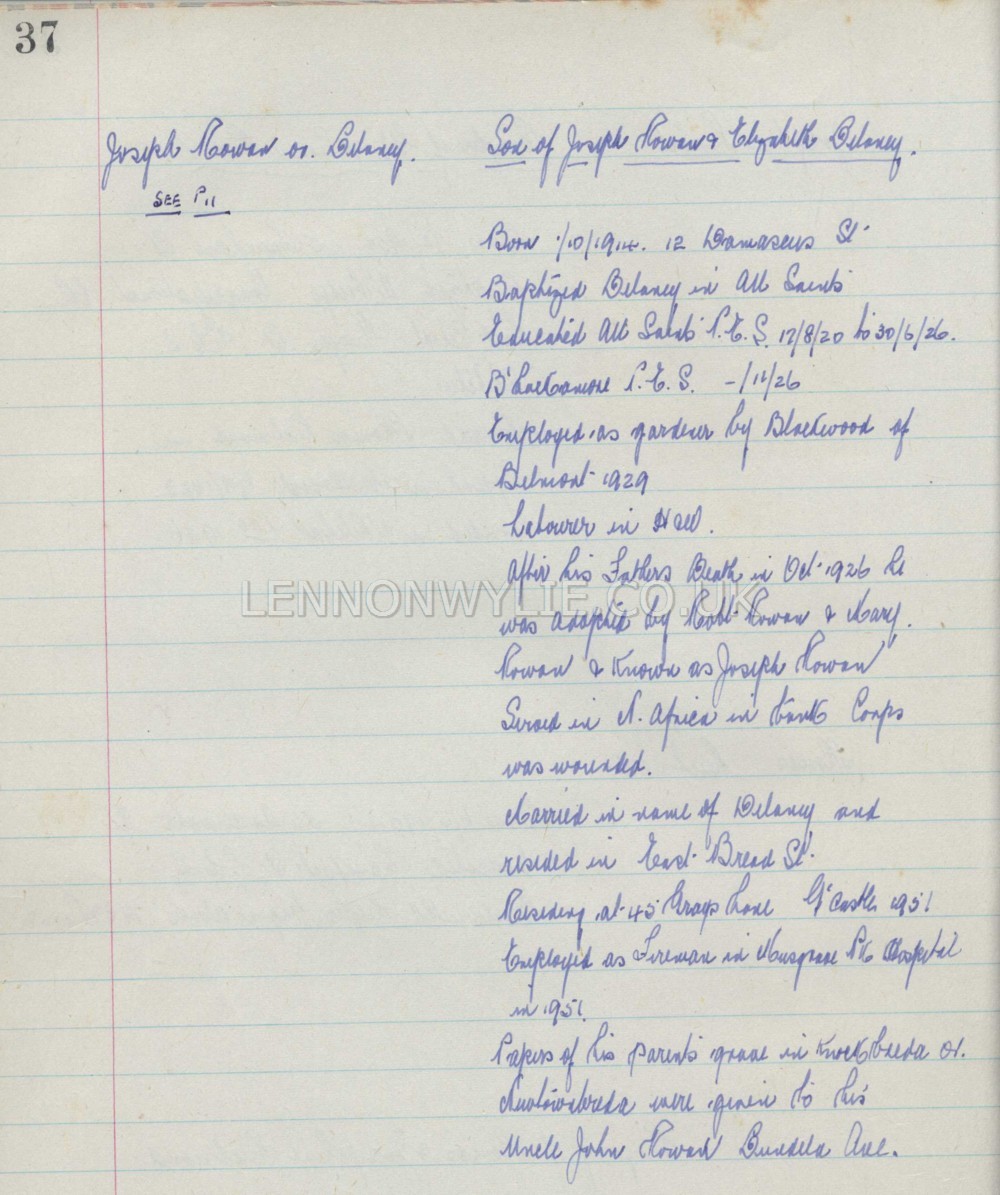 37
Joseph Rowan or. Delaney. Son of Joseph Rowan & Elizabeth Delaney.
SEE P11
Born 1/10/1914. 12 Damascus St.
Baptized Delaney in All Saints
Educated All Saints P.E.S. 17/8/20 to 30/6/26.
B'hackamore P.E.S. -/11/26
Employed as gardener by Blackwood of
Belmont 1929
Labourer in H&W.
After his Fathers Death in Oct 1926 he
LENNONWYLIE.CO.UK
was adopted by Robt Rowan & Mary.
Rowan & Known as Joseph Rowan
Served in N. Africa in Tank Corps
was wounded.
Married in name of Delaney and
resided in East Bread St.
Residing at 45 Grays Lane G'Castle 1951
Employed as Fireman in Musgrave Pk Hospital
in 1951.
Papers of his parents grave in Knockbreda or.
Newtownbreda were given to his
Uncle John Rowan Bundela Ave.